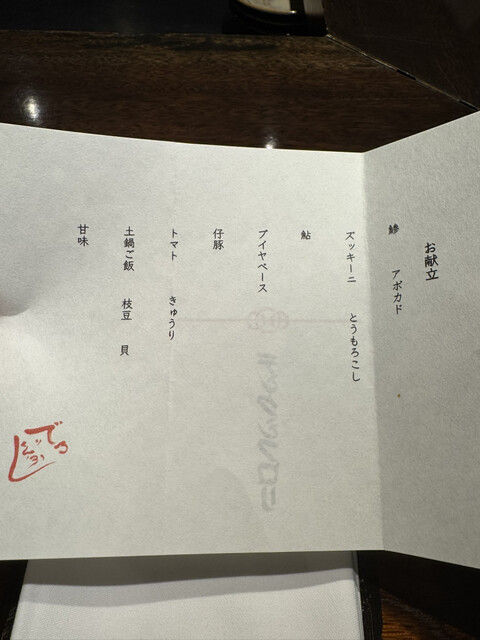 お献立
鰺 アボカド
ズッキーニ とうもろこし
鮎
ブイヤベース
仔豚
トマト きゅうり
土鍋ご飯 枝豆 貝
甘味